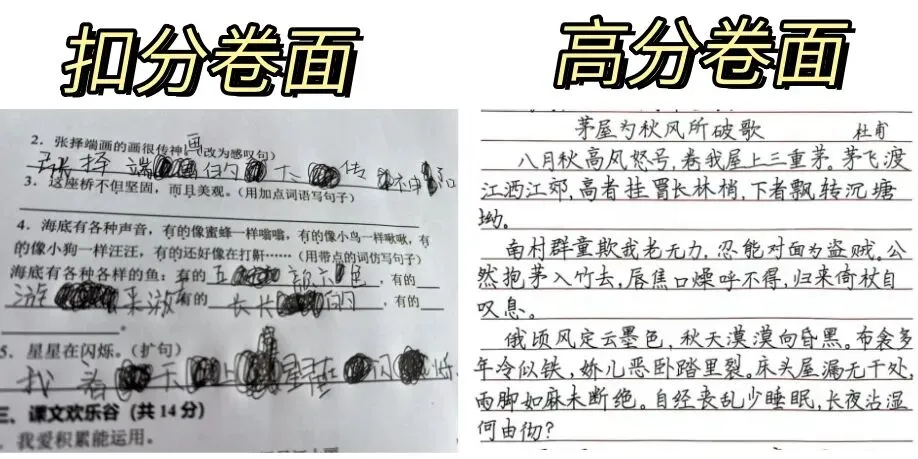 扣分卷面
2. 张择端画的画很传神。(改为感叹句)
画
张择端 的 大 传 神 阳
3. 这座桥不但坚固,而且美观。(用加点词语写句子)
4. 海底有各种声音,有的像蜜蜂一样嗡嗡,有的像小鸟一样啾啾,有
的像小狗一样汪汪,有的还好像在打鼾……(用带点的词仿写句子)
海底有各种各样的鱼:有的五 颜六色,有的
游 来游 有的 长长 的,有的
。
5. 星星在闪烁。(扩句)
找 着 天 上 星 在 闪
三、课文欢乐谷(共14分)
. 我爱积累能运用。
高分卷面
茅屋为秋风所破歌 杜甫
八月秋高风怒号,卷我屋上三重茅。茅飞渡
江洒江郊,高者挂罥长林梢,下者飘转沉塘
坳。
南村群童欺我老无力,忍能对面为盗贼。公
然抱茅入竹去,唇焦口燥呼不得,归来倚杖自
叹息。
俄顷风定云墨色,秋天漠漠向昏黑。布衾多
年冷似铁,娇儿恶卧踏里裂。床头屋漏无干处,
雨脚如麻未断绝。自经丧乱少睡眠,长夜沾湿
何由彻?